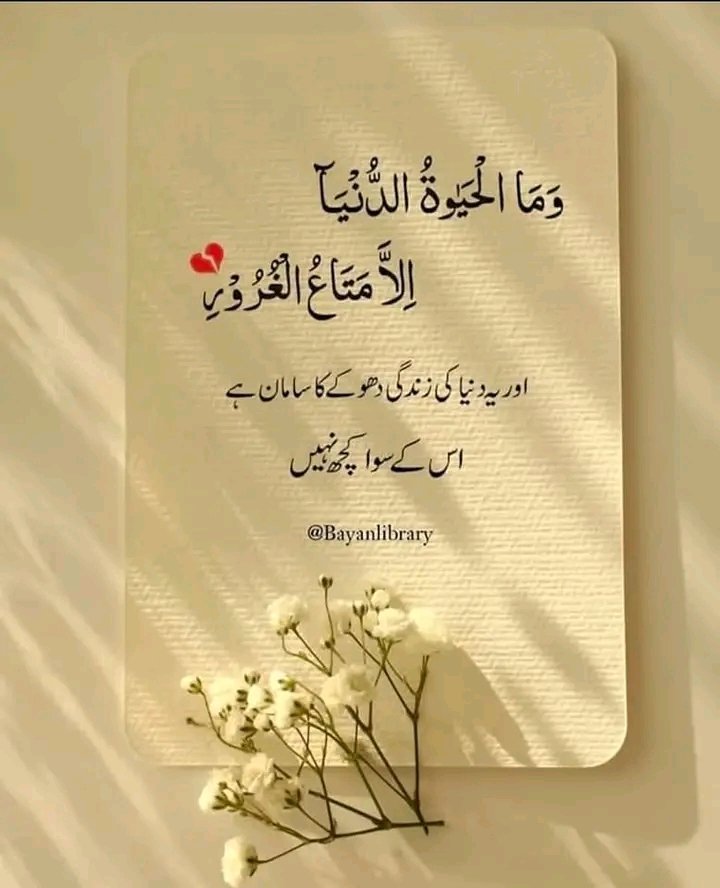 وَمَا الْحَيٰوةُ الدُّنْيَآ
اِلَّا مَتَاعُ الْغُرُوْرِ
اور یہ دنیا کی زندگی دھوکے کا سامان ہے
اس کے سوا کچھ نہیں
@Bayanlibrary